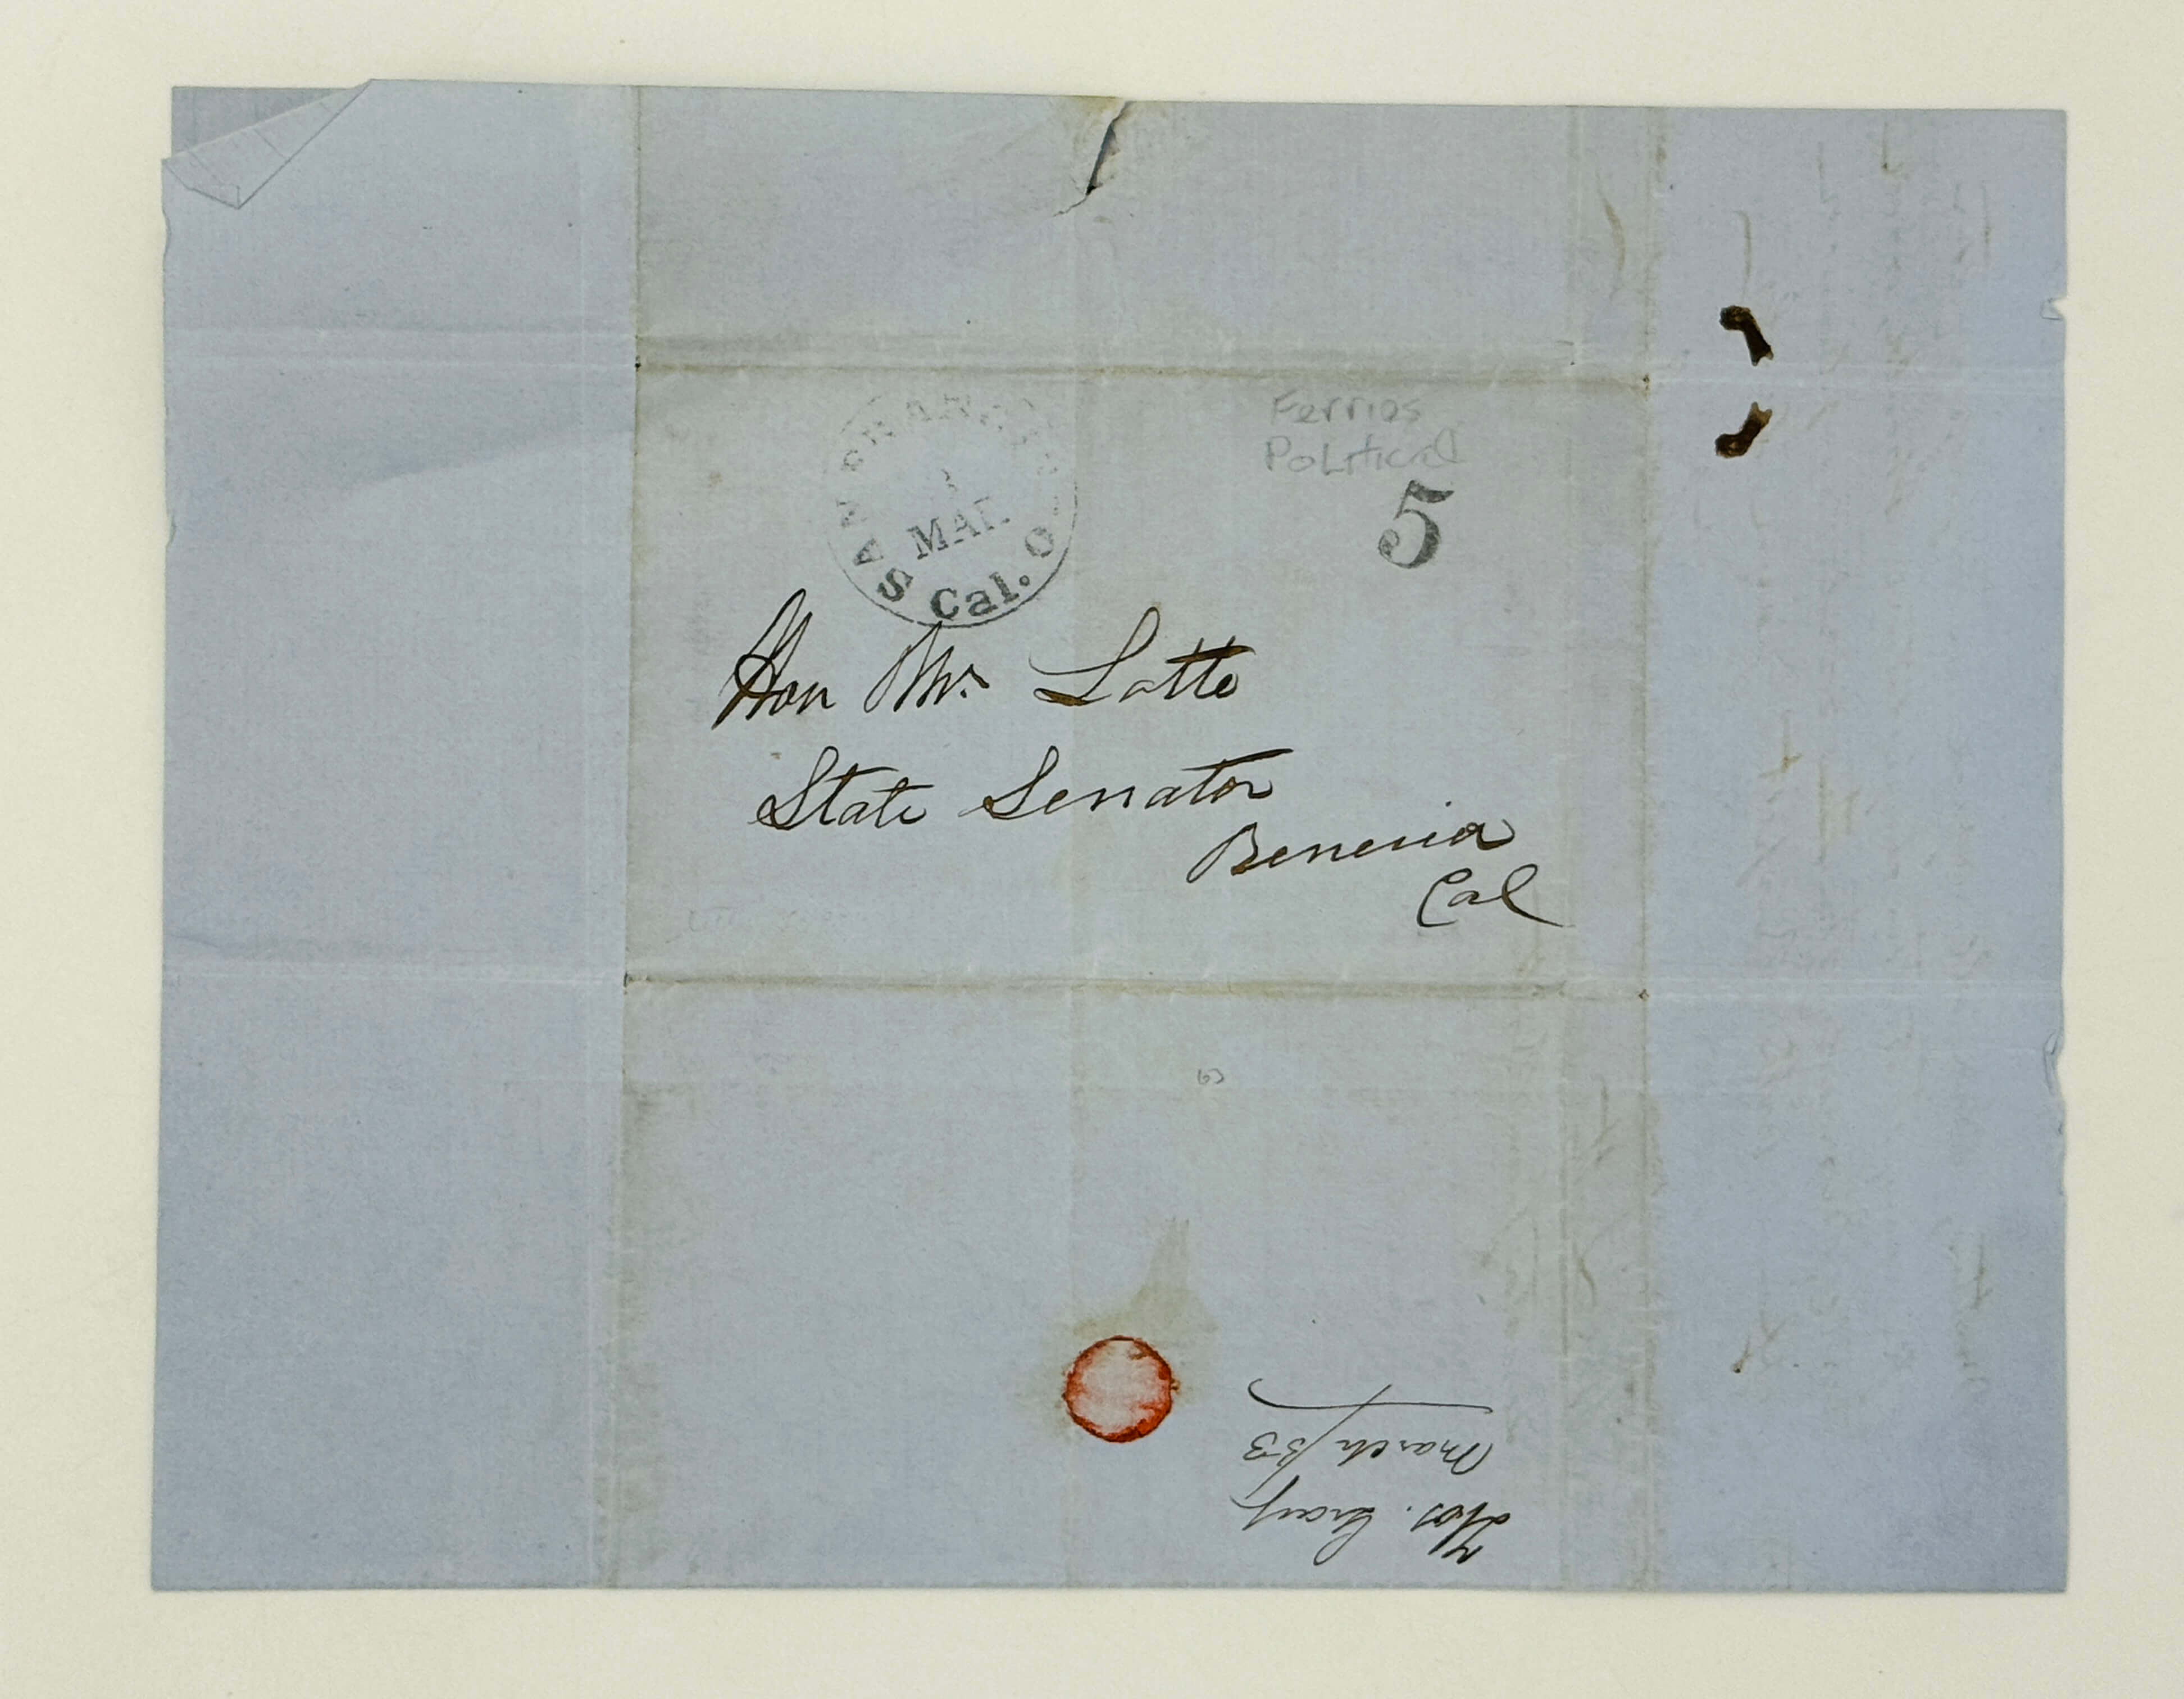 SAN FRANCISCO
3
MAR
Cal.
Ferries
Political
5
Hon Mr. Lotte
State Senator
Benecia
Cal
63
Thos. Gray
March /53